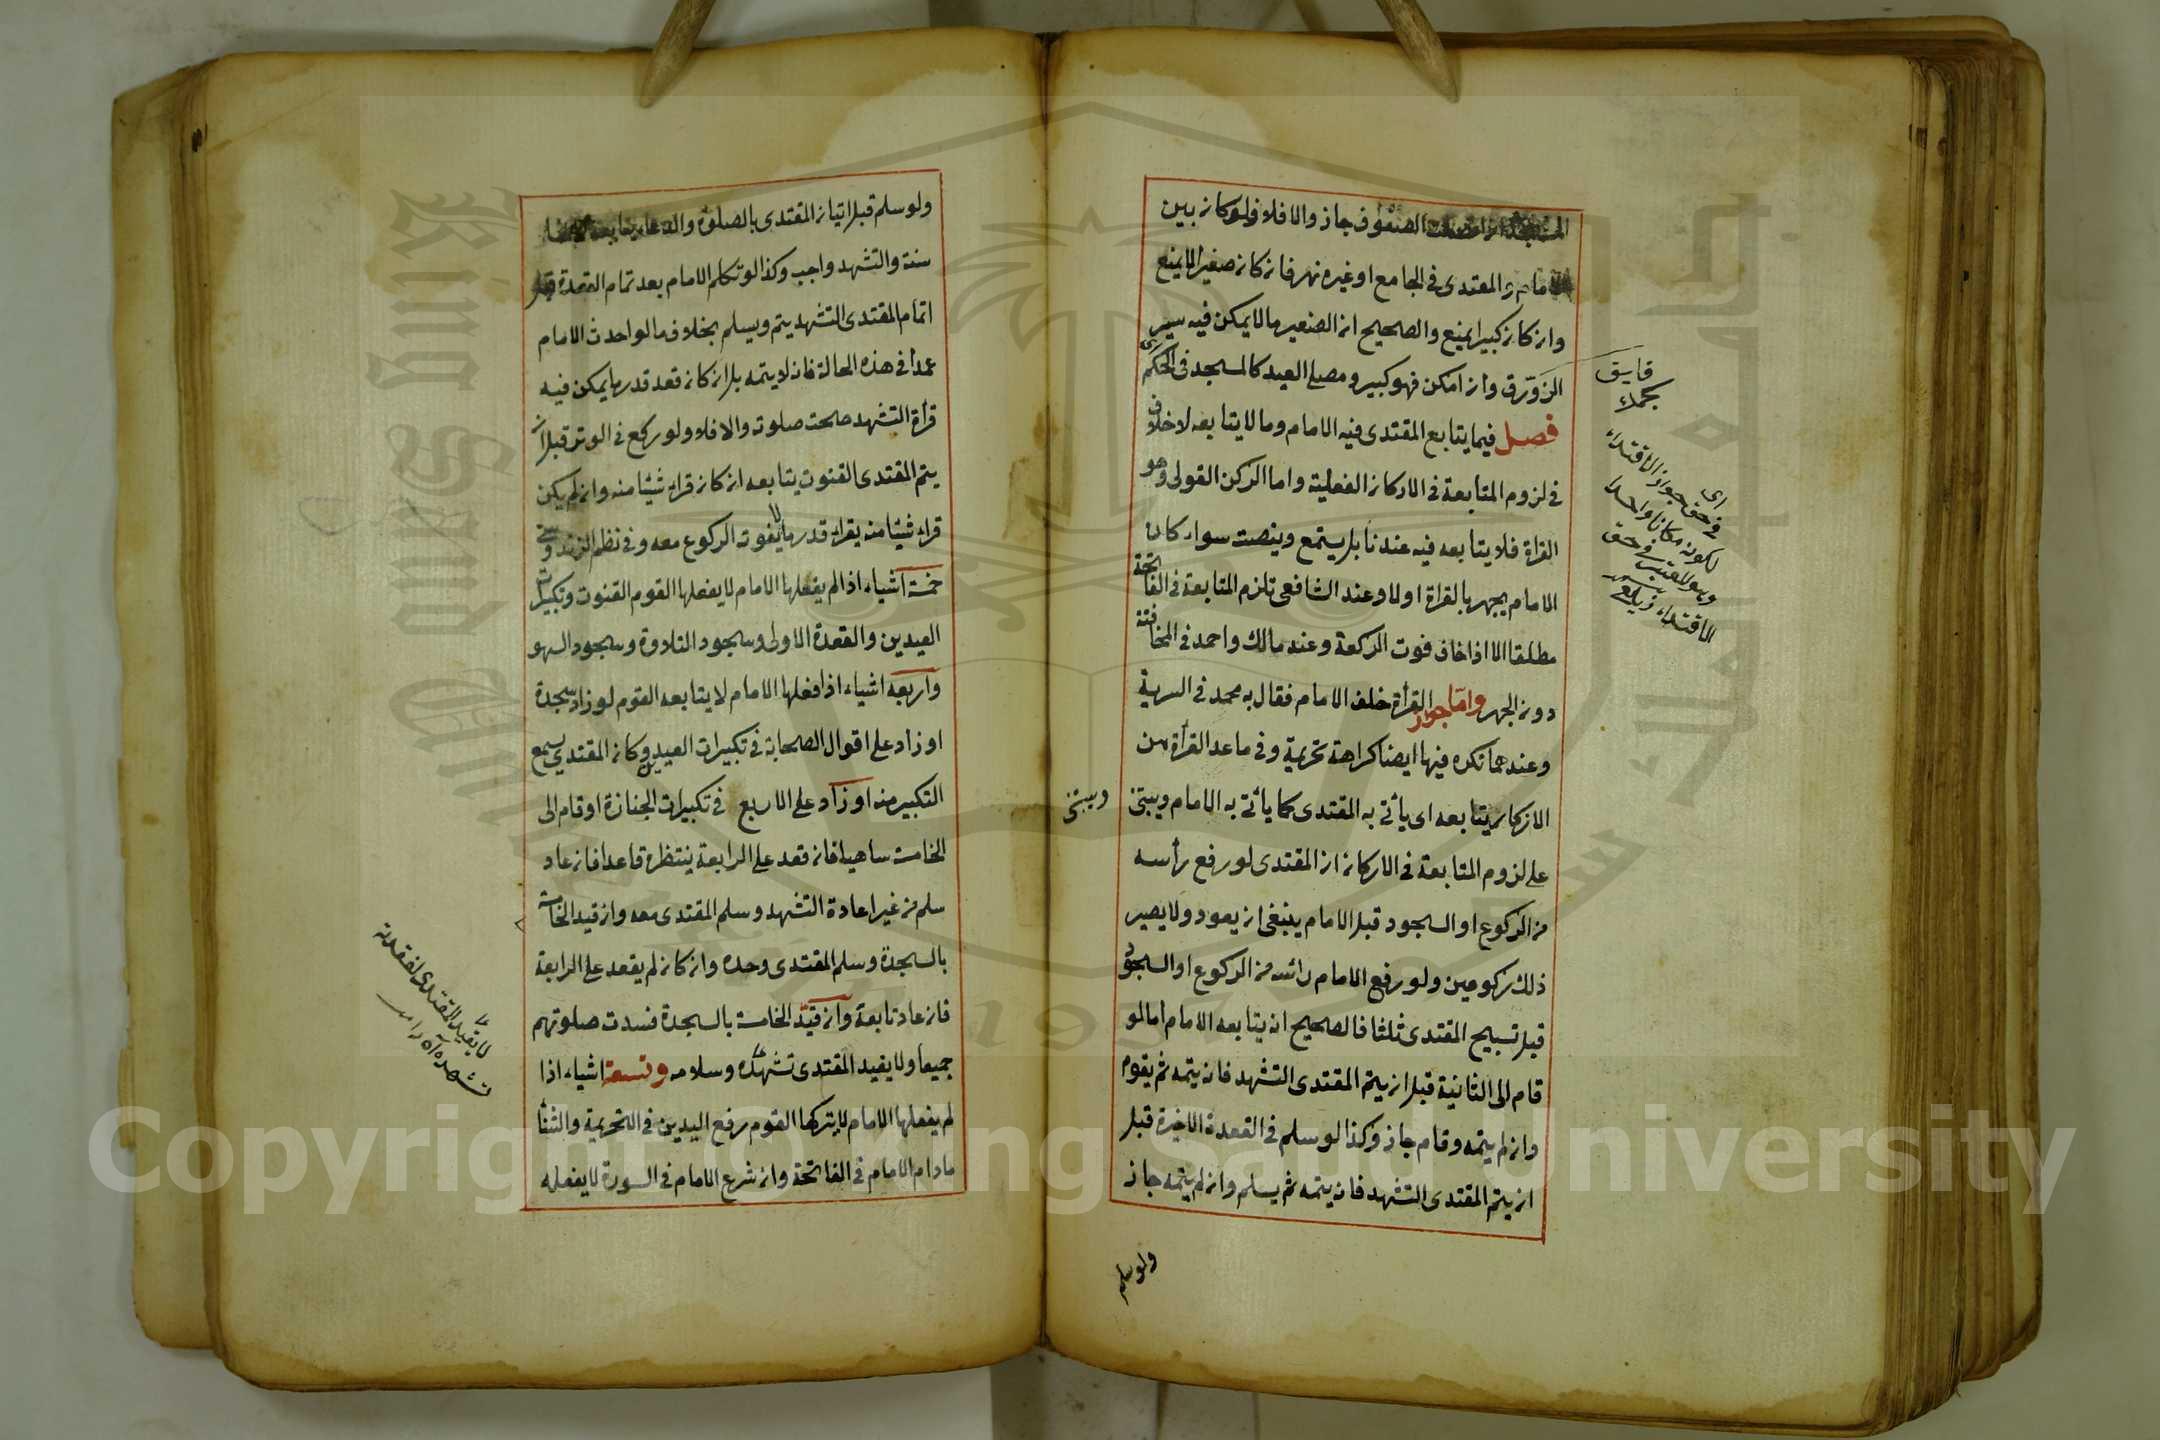 الصفوف جاز والا فلا ولو كان بين
الامام والمقتدى فى الجامع او غيره نهر فان كان صغيرا لا يمنع
وان كان كبيرا يمنع والصحيح ان الصغير ما لا يمكن فيه سير
الزورق وان امكن فهو كبير ومصلى العيد كالمسجد فى الحكم
فصل فيما يتابع المقتدى فيه الامام وما لا يتابعه لا خلاف
فى لزوم المتابعة فى الاركان الفعلية واما الركن القولى وهو
القراة فلا يتابعه فيه عندنا بل يستمع وينصت سواء كان
الامام يجهر بالقراة او لا وعند الشافعى تلزم المتابعة فى الفاتحة
مطلقا الا اذا خاف فوت الركعة وعند مالك واحمد فى المخافتة
دون الجهر واما جواز القرأة خلف الامام فقال به محمد فى السرية
وعندهما تكره فيها ايضا كراهة تحريمة وفى ما عدا القرأة من
الاذكار يتابعه اى يأتى به المقتدى كما يأتى به الامام ويبتنى
على لزوم المتابعة فى الاركان ان المقتدى لو رفع رأسه
من الركوع او السجود قبل الامام ينبغى ان يعود ولا يصير
ذلك ركوعين ولو رفع الامام راسه من الركوع او السجود
قبل تسبيح المقتدى ثلثا فالصحيح ان يتابعه الامام اما لو
قام الى الثانية قبل ان يتم المقتدى التشهد فانه يتمه ثم يقوم
وان لم يتمه وقام جاز وكذا لو سلم فى القعدة الاخيرة قبل
ان يتم المقتدى التشهد فانه يتمه ثم يسلم وان لم يتمه جاز
ولو سلم
قايق
اى
فى حق جواز الاقتداء
لكونه مكانا واحدا
وهو المعتبر فى حق
الاقتداء زيلعى
ويبتنى
ولو سلم قبل اتيان المقتدى بالصلوة والدعا يتابعه
سنة والتشهد واجب وكذا لو تكلم الامام بعد تمام القعدة قبل
اتمام المقتدى التشهد يتم ويسلم بخلاف ما لو احدث الامام
عمدا فى هذه الحالة فانه لا يتمه بل ان كان قعد قدر ما يمكن فيه
قرأة التشهد صحت صلوته والا فلا ولو ركع فى الوتر قبل ان
يتم المقتدى القنوت يتابعه ان كان قراء شيئا منه وان لم يكن
قراء شيئا منه يقراء قدر ما لا يفوت الركوع معه وفى نظم الزندويستى
خمسة اشياء اذا لم يفعلها الامام لا يفعلها القوم القنوت وتكبيرات
العيدين والقعدة الاولى وسجود التلاوة وسجود السهو
واربعه اشياء اذا فعلها الامام لا يتابعه القوم لو زاد سجدة
او زاد على اقوال الصحابة فى تكبيرات العيدين وكان المقتدى يسمع
التكبير منه او زاد على الاربع فى تكبيرات الجنازة او قام الى
الخامسة ساهيا فان قعد على الرابعة ينتظره قاعدا فان عاد
سلم من غير اعادة التشهد وسلم المقتدى معه وان قيد الخامسة
بالسجدة وسلم المقتدى وحده وان كان لم يقعد على الرابعة
فان عاد تابعه وان قيد الخامسة بالسجدة فسدت صلوتهم
جميعا ولا يفيد المقتدى تشهده وسلامه وتسعة اشياء اذا
لم يفعلها الامام لا يتركها القوم رفع اليدين فى التحريمة والثنا
مادام الامام فى الفاتحة وان شرع الامام فى السورة لا يفعله
Copyright © King Saud University
King Saud University
1957